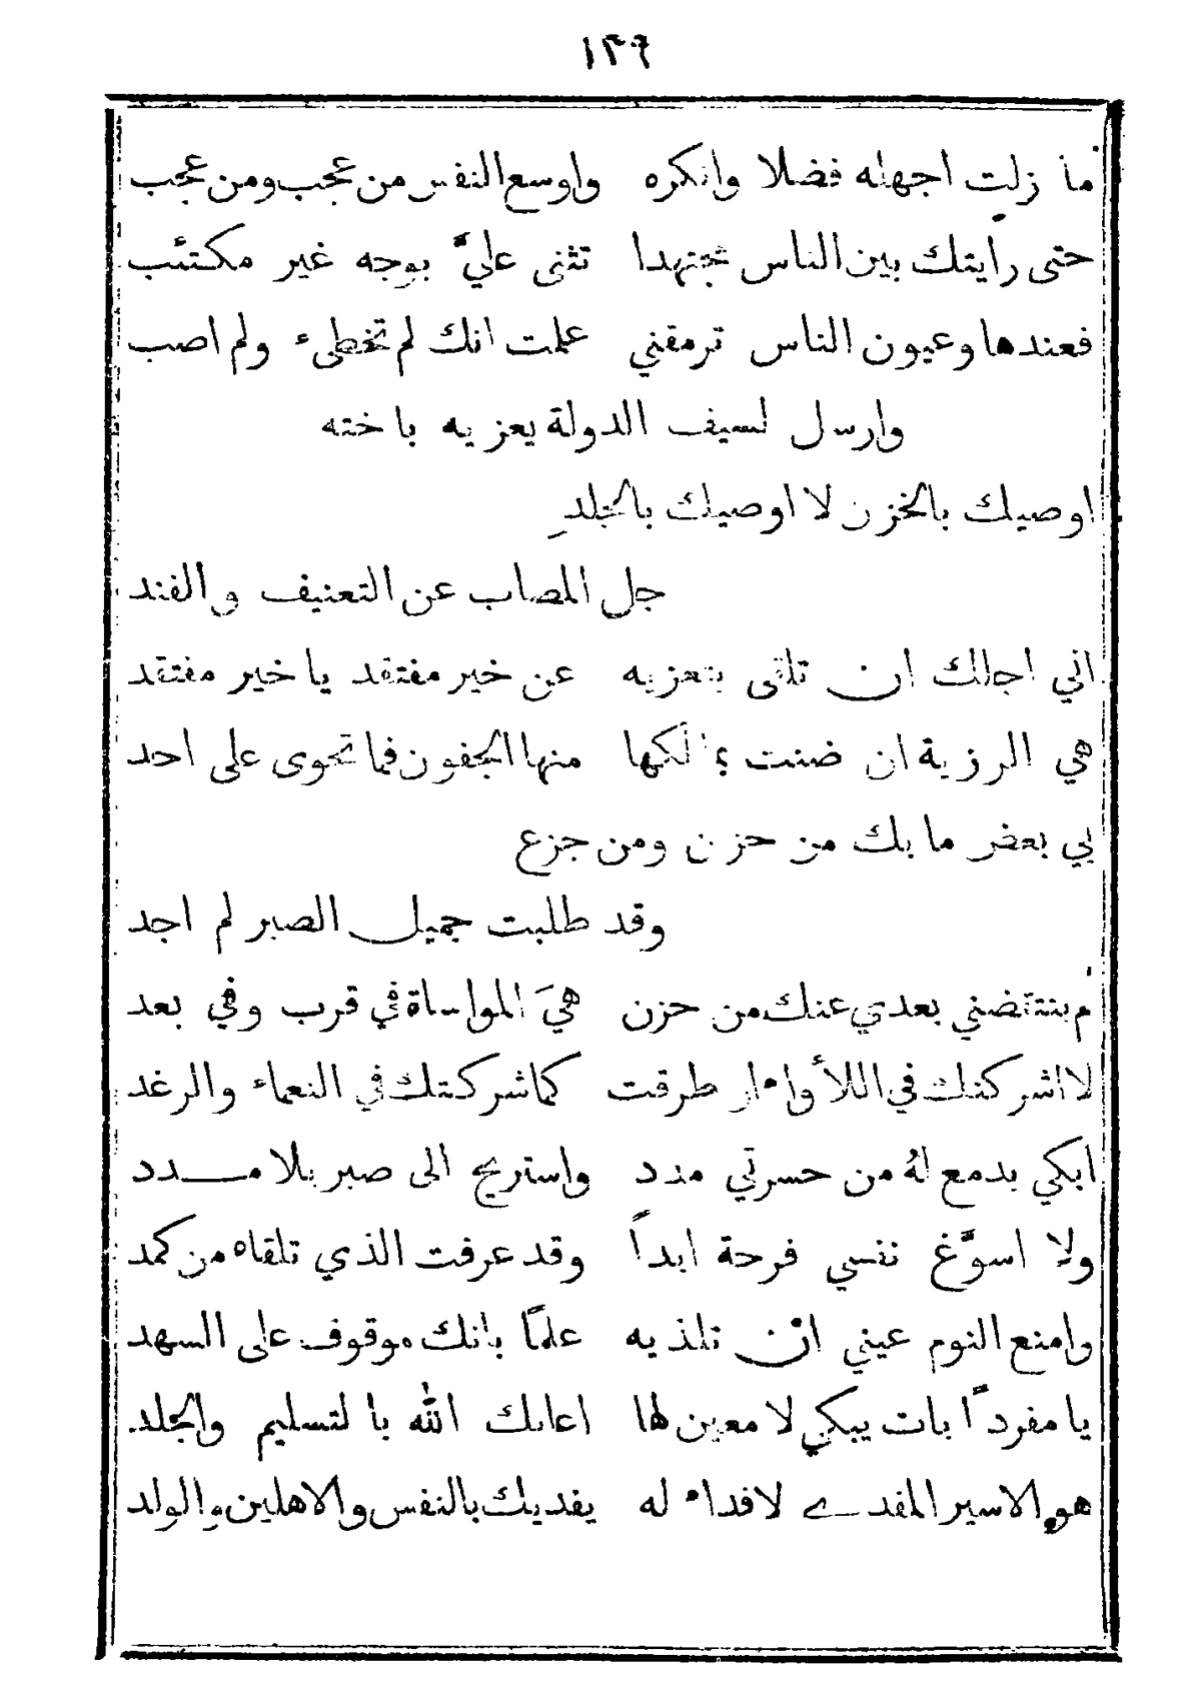 ١٣٦
ما زلت اجهله فضلا وانكره واوسع النفس من عجب ومن عجب
حتى رأيتك بين الناس مجتهدا تثنى عليَّ بوجه غير مكتئب
فعندها وعيون الناس ترمقني علمت انك لم تخطىء ولم اصب
وارسل لسيف الدولة يعزيه باخته
اوصيك بالحزن لا اوصيك بالجلدِ
جل المصاب عن التعنيف والفند
اني اجلك ان تلقى بتعزيه عن خير مفتقد يا خير مفتقد
هي الرزية ان ضنت بما لكها منها الجفون فما تحوى على احد
بي بعض ما بك من حزن ومن جزع
وقد طلبت جميل الصبر لم اجد
لم ينتقضني بعدي عنك من حزن هيَ المواساة في قرب وفي بعد
لا اشركنك في اللأواء ان طرقت كما شركتك في النعماء والرغد
ابكي بدمع لهُ من حسرتي مدد واستريح الى صبر بلا مدد
ولا اسوَّغ نفسي فرحة ابداً وقد عرفت الذي تلقاه من كمد
وامنع النوم عيني ان تلذ يه علمًا بانك موقوف على السهد
يا مفردًا بات يبكي لا معين لها اعانك الله با لتسليم والجلد
هو الاسير المفدے لا فداء له يفديك بالنفس والاهلين والولد